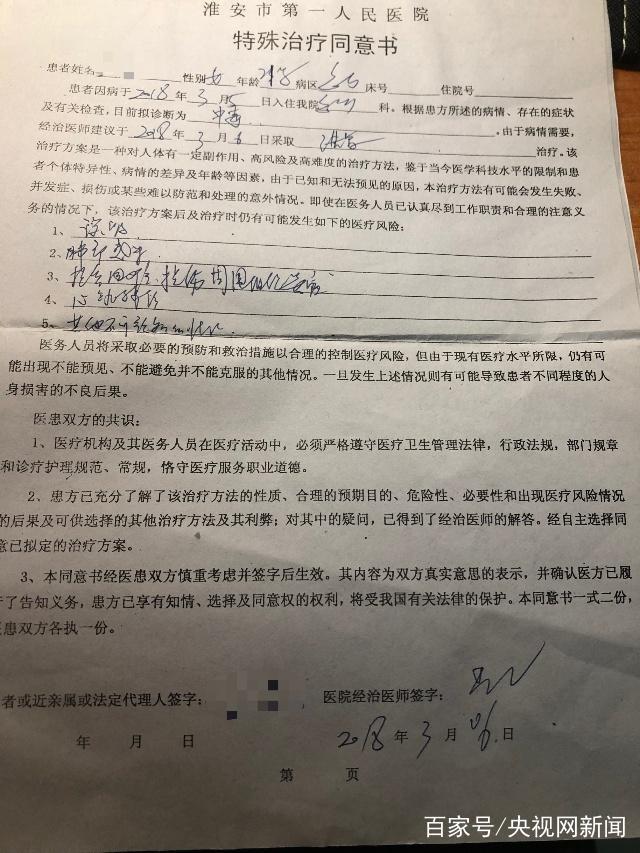 淮安市第一人民医院
特殊治疗同意书
患者姓名 性别 女 年龄 病区 床号 住院号
患者因病于2018年3月5日入住我院 科。根据患方所述的病情、存在的症状
及有关检查,目前拟诊断为 中毒 。由于病情需要,
经治医师建议于2018年3月6日采取 洗胃 治疗。该
治疗方案是一种对人体有一定副作用、高风险及高难度的治疗方法,鉴于当今医学科技水平的限制和患
者个体特异性、病情的差异及年龄等因素,由于已知和无法预见的原因,本治疗方法有可能会发生失败、
并发症、损伤或某些难以防范和处理的意外情况。即使在医务人员已认真尽到工作职责和合理的注意义
务的情况下,该治疗方案后及治疗时仍有可能发生如下的医疗风险:
1、
2、
3、
4、
5、其他不可预知的情况
医务人员将采取必要的预防和救治措施以合理的控制医疗风险,但由于现有医疗水平所限,仍有可
能出现不能预见、不能避免并不能克服的其他情况。一旦发生上述情况则有可能导致患者不同程度的人
身损害的不良后果。
医患双方的共识:
1、医疗机构及其医务人员在医疗活动中,必须严格遵守医疗卫生管理法律,行政法规,部门规章
和诊疗护理规范、常规,恪守医疗服务职业道德。
2、患方已充分了解了该治疗方法的性质、合理的预期目的、危险性、必要性和出现医疗风险情况
的后果及可供选择的其他治疗方法及其利弊;对其中的疑问,已得到了经治医师的解答。经自主选择同
意已拟定的治疗方案。
3、本同意书经医患双方慎重考虑并签字后生效。其内容为双方真实意思的表示,并确认医方已履
行了告知义务,患方已享有知情、选择及同意权的权利,将受我国有关法律的保护。本同意书一式二份,
医患双方各执一份。
者或近亲属或法定代理人签字: 医院经治医师签字:
年 月 日 2018年3月6日
第 页
百家号/央视网新闻